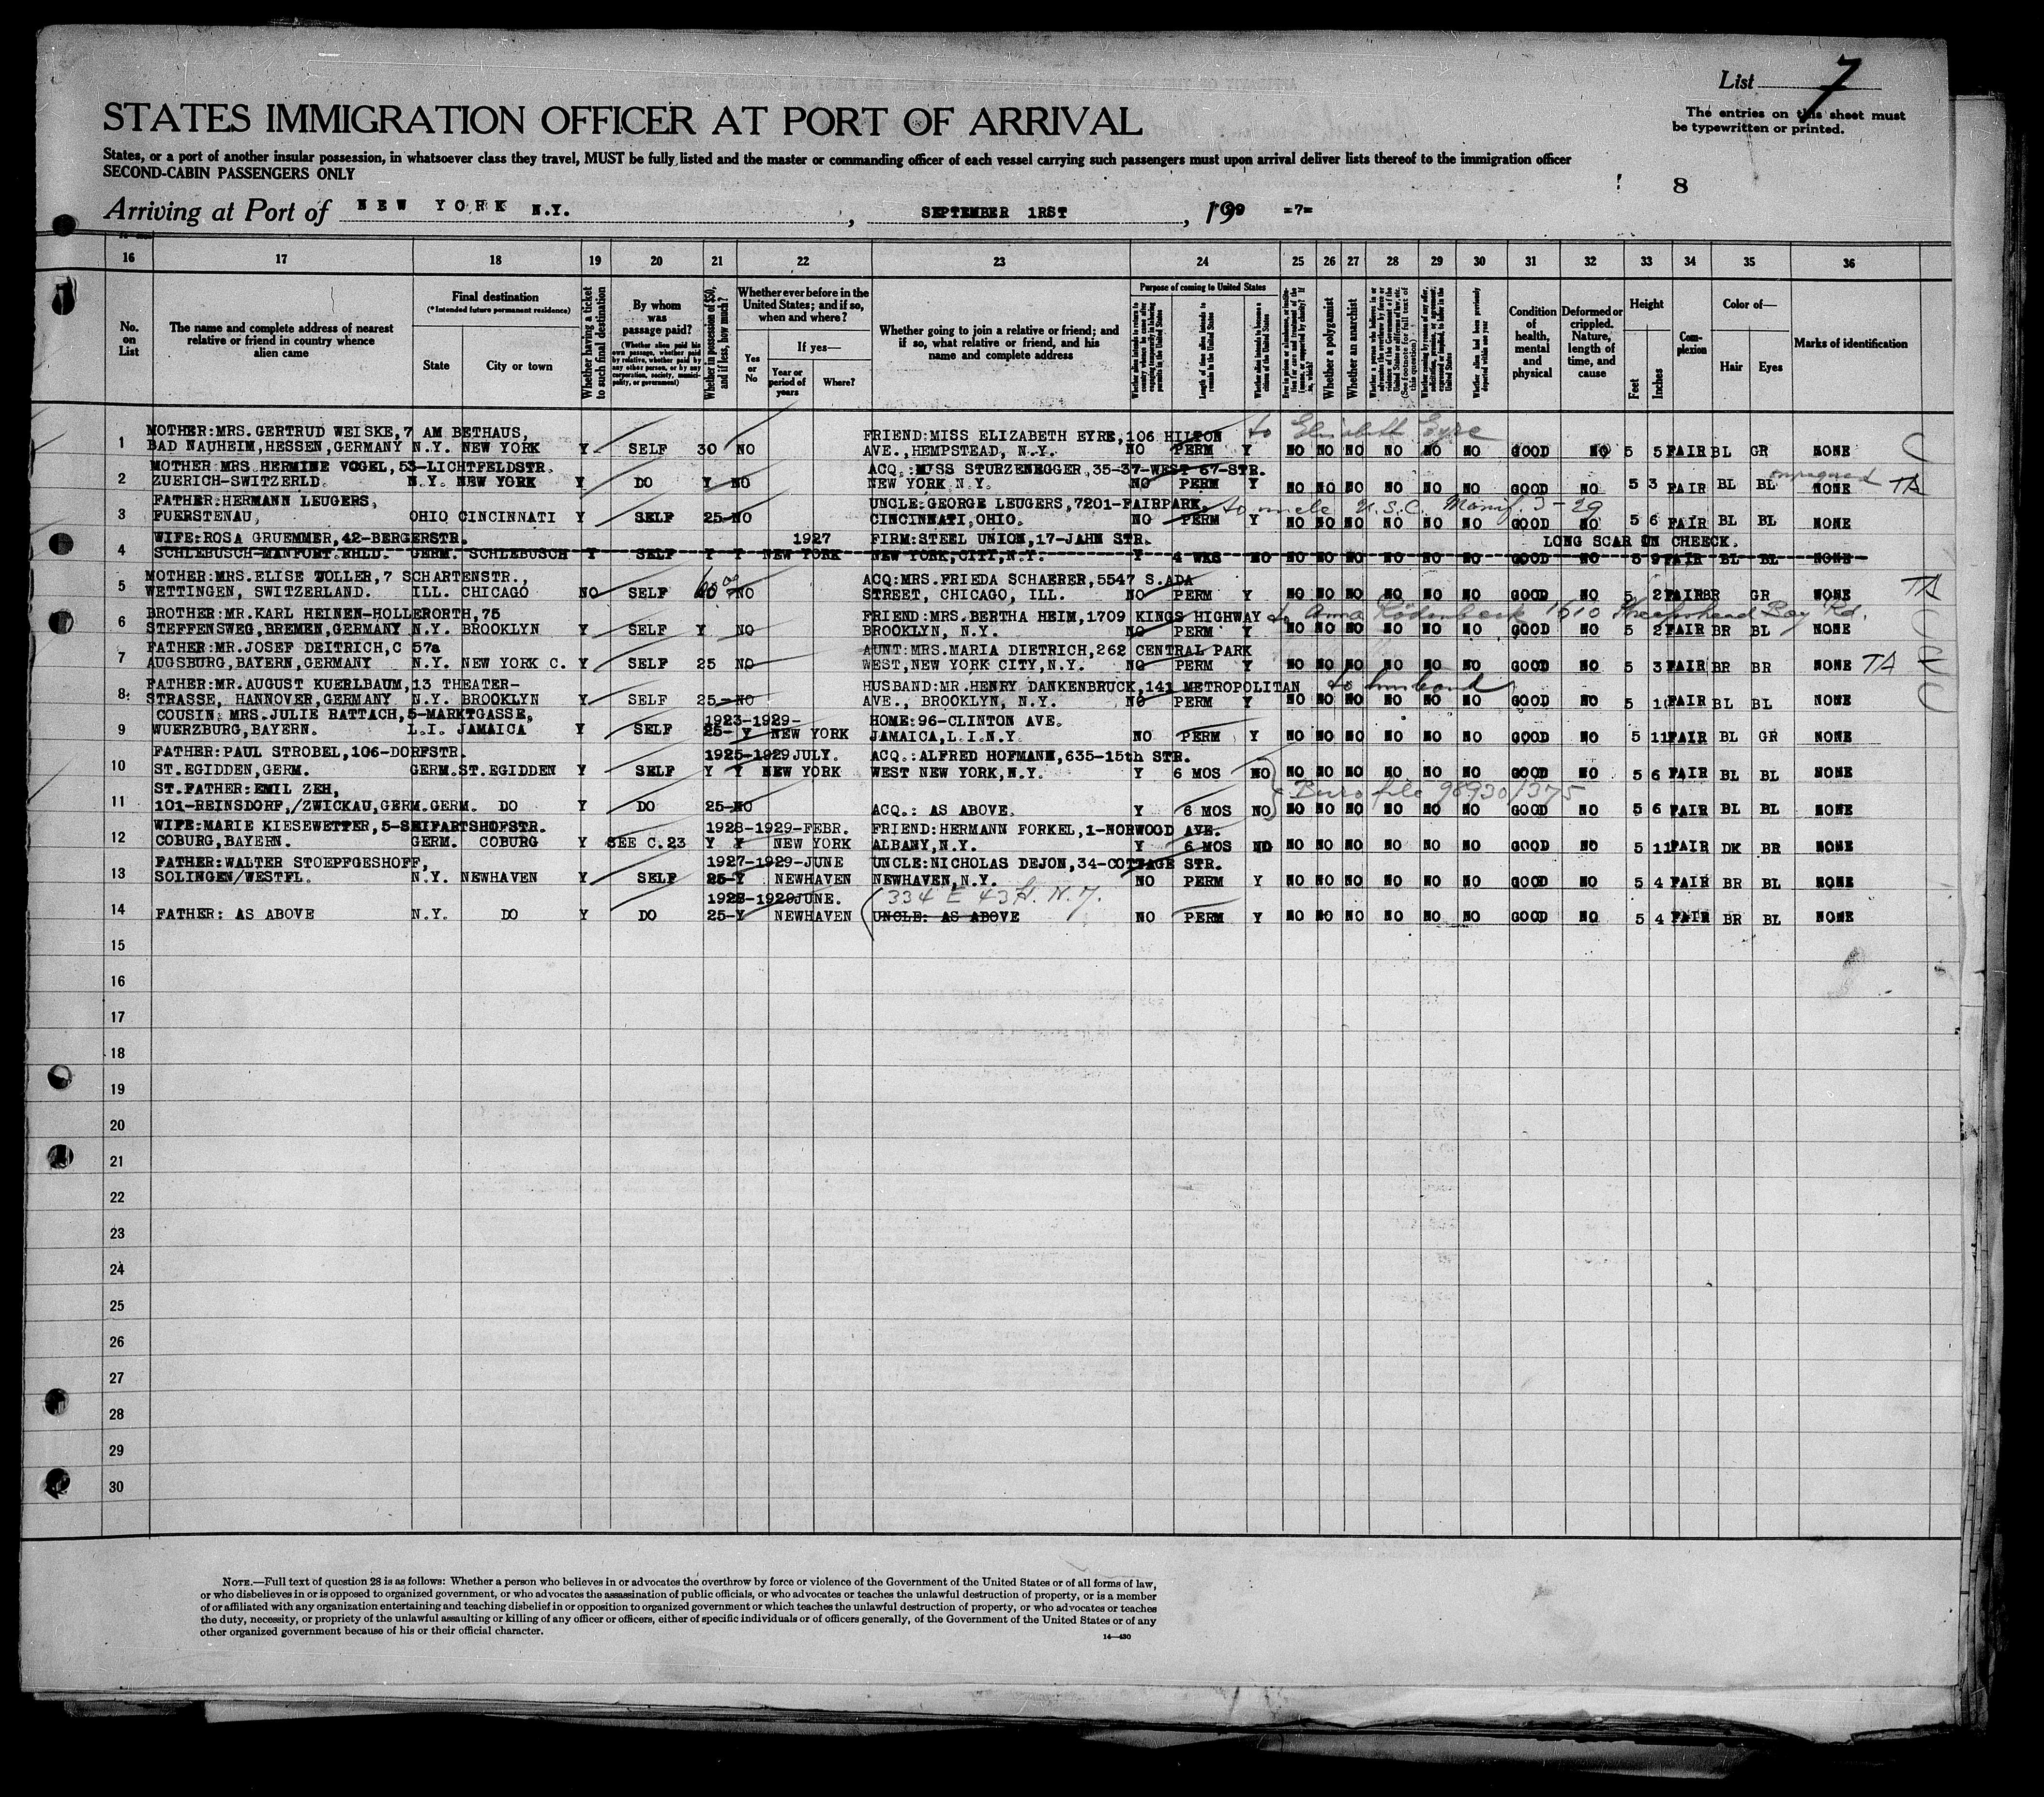 List 7
The entries on this sheet must
be typewritten or printed.
STATES IMMIGRATION OFFICER AT PORT OF ARRIVAL
States, or a port of another insular possession, in whatsoever class they travel, MUST be fully listed and the master or commanding officer of each vessel carrying such passengers must upon arrival deliver lists thereof to the immigration officer
SECOND-CABIN PASSENGERS ONLY
8
Arriving at Port of NEW YORK N.Y., SEPTEMBER 1RST, 19 =7=
16 17 18 19 20 21 22 23 24 25 26 27 28 29 30 31 32 33 34 35 36
No. on List
The name and complete address of nearest relative or friend in country whence alien came
Final destination
(*Intended future permanent residence)
State
City or town
Whether having a ticket to such final destination
By whom was passage paid?
(Whether alien paid his own passage, whether paid by relative, whether paid by any other person, or by any corporation, society, municipality, or government)
Whether in possession of $50, and if less, how much?
Whether ever before in the United States; and if so, when and where?
Yes or No
If yes—
Year or period of years
Where?
Whether going to join a relative or friend; and if so, what relative or friend, and his name and complete address
Purpose of coming to United States
Length of time alien intends to remain in the United States
Whether alien intends to become a citizen of the United States
Whether a polygamist
Whether an anarchist
Condition of health, mental and physical
Deformed or crippled. Nature, length of time, and cause
Height
Feet
Inches
Complexion
Color of—
Hair
Eyes
Marks of identification
MOTHER:MRS. GERTRUD WEISKE,7 AM BETHAUS, FRIEND:MISS ELIZABETH EYRE,106 HILTON to Elizabeth Eyre
1 BAD NAUHEIM,HESSEN,GERMANY N.Y. NEW YORK Y SELF 30 NO AVE.,HEMPSTEAD, N.Y. NO PERM Y NO NO NO NO NO NO GOOD NO 5 5 FAIR BL GR NONE C
MOTHER MRS HERMINE VOGEL,53-LICHTFELDSTR. ACQ.:MISS STURZENEGGER,35-37-WEST 67-STR.
2 ZUERICH-SWITZERLD. N.Y. NEW YORK Y DO Y NO NEW YORK N.Y. NO PERM Y NO NO NO NO NO NO GOOD NO 5 3 FAIR BL BL NONE TA
FATHER:HERMANN LEUGERS, UNCLE:GEORGE LEUGERS,7201-FAIRPARK. to uncle U.S.C.
3 FUERSTENAU, OHIO CINCINNATI Y SELF 25-NO CINCINNATI,OHIO. NO PERM Y NO NO NO NO NO NO GOOD NO 5 6 FAIR BL BL NONE
WIFE:ROSA GRUEMMER,42-BERGERSTR. 1927 FIRM:STEEL UNION,17-JAHN STR. LONG SCAR ON CHEECK.
4 SCHLEBUSCH-MANFORT.RHLD. GERM. SCHLEBUSCH Y SELF Y Y NEW YORK NEW YORK,CITY,N.Y. Y 4 WKS NO NO NO NO NO NO NO GOOD NO 5 9 FAIR BL BL NONE
MOTHER:MRS.ELISE ZOLLER,7 SCHARTENSTR., ACQ:MRS.FRIEDA SCHAERER,5547 S.ADA
5 WETTINGEN, SWITZERLAND. ILL. CHICAGO NO SELF NO STREET, CHICAGO, ILL. NO PERM Y NO NO NO NO NO NO GOOD NO 5 2 FAIR BR GR NONE TA
BROTHER:MR.KARL HEINEN-HOLLERORTH,75 FRIEND:MRS.BERTHA HEIM,1709 KINGS HIGHWAY to Anna 1610 Sheepshead Bay Rd.
6 STEFFENSWEG,BREMEN,GERMANY N.Y. BROOKLYN Y SELF Y NO BROOKLYN, N.Y. NO PERM Y NO NO NO NO NO NO GOOD NO 5 2 FAIR BR BL NONE C
FATHER:MR.JOSEF DEITRICH,C 57a AUNT:MRS.MARIA DIETRICH,262 CENTRAL PARK
7 AUGSBURG,BAYERN,GERMANY N.Y. NEW YORK C. Y SELF 25 NO WEST,NEW YORK CITY,N.Y. NO PERM Y NO NO NO NO NO NO GOOD NO 5 3 FAIR BR BR NONE TA
FATHER:MR.AUGUST KUERLBAUM,13 THEATER- HUSBAND:MR.HENRY DANKENBRUCK,141 METROPOLITAN to husband
8 STRASSE, HANNOVER,GERMANY N.Y. BROOKLYN Y SELF 25-NO AVE., BROOKLYN, N.Y. NO PERM Y NO NO NO NO NO NO GOOD NO 5 10 FAIR BL BL NONE C
COUSIN: MRS.JULIE RATTACH,5-MARKTGASSE, 1923-1929- HOME:96-CLINTON AVE.
9 WUERZBURG,BAYERN. L.I. JAMAICA Y SELF 25- Y NEW YORK JAMAICA,L.I.N.Y. NO PERM Y NO NO NO NO NO NO GOOD NO 5 11 FAIR BL GR NONE
FATHER:PAUL STROBEL,106-DORFSTR. 1925-1929 JULY. ACQ.:ALFRED HOFMANN,635-15th STR.
10 ST.EGIDDEN,GERM. GERM. ST.EGIDDEN Y SELF Y Y NEW YORK WEST NEW YORK,N.Y. Y 6 MOS NO NO NO NO NO NO NO GOOD NO 5 6 FAIR BL BL NONE
ST.FATHER:EMIL ZEH, Buro file 98930/375
11 101-REINSDORF,/ZWICKAU,GERM. GERM. DO Y DO 25-NO ACQ.: AS ABOVE. Y 6 MOS NO NO NO NO NO NO NO GOOD NO 5 6 FAIR BL BL NONE
WIFE:MARIE KIESEWETTER,5-SEIFARTSHOFSTR. 1928-1929-FEBR. FRIEND:HERMANN FORKEL,1-NORWOOD AVE.
12 COBURG,BAYERN. GERM. COBURG Y SEE C.23 Y Y NEW YORK ALBANY,N.Y. Y 6 MOS NO NO NO NO NO NO NO GOOD NO 5 11 FAIR DK BR NONE
FATHER:WALTER STOEPFGESHOFF, 1927-1929-JUNE UNCLE:NICHOLAS DEJON,34-COTTAGE STR.
13 SOLINGEN/WESTFL. N.Y. NEWHAVEN Y SELF 25-Y NEWHAVEN NEWHAVEN,N.Y. NO PERM Y NO NO NO NO NO NO GOOD NO 5 4 FAIR BR BL NONE
1928-1929JUNE. 334 E 43 St. N.Y.
14 FATHER: AS ABOVE N.Y. DO Y DO 25-Y NEWHAVEN UNCLE: AS ABOVE NO PERM Y NO NO NO NO NO NO GOOD NO 5 4 FAIR BR BL NONE
15
16
17
18
19
20
21
22
23
24
25
26
27
28
29
30
NOTE.—Full text of question 28 is as follows: Whether a person who believes in or advocates the overthrow by force or violence of the Government of the United States or of all forms of law,
or who disbelieves in or is opposed to organized government, or who advocates the assassination of public officials, or who advocates or teaches the unlawful destruction of property, or is a member
of or affiliated with any organization entertaining and teaching disbelief in or opposition to organized government or which teaches the unlawful destruction of property, or who advocates or teaches
the duty, necessity, or propriety of the unlawful assaulting or killing of any officer or officers, either of specific individuals or of officers generally, of the Government of the United States or of any
other organized government because of his or their official character.
14—430